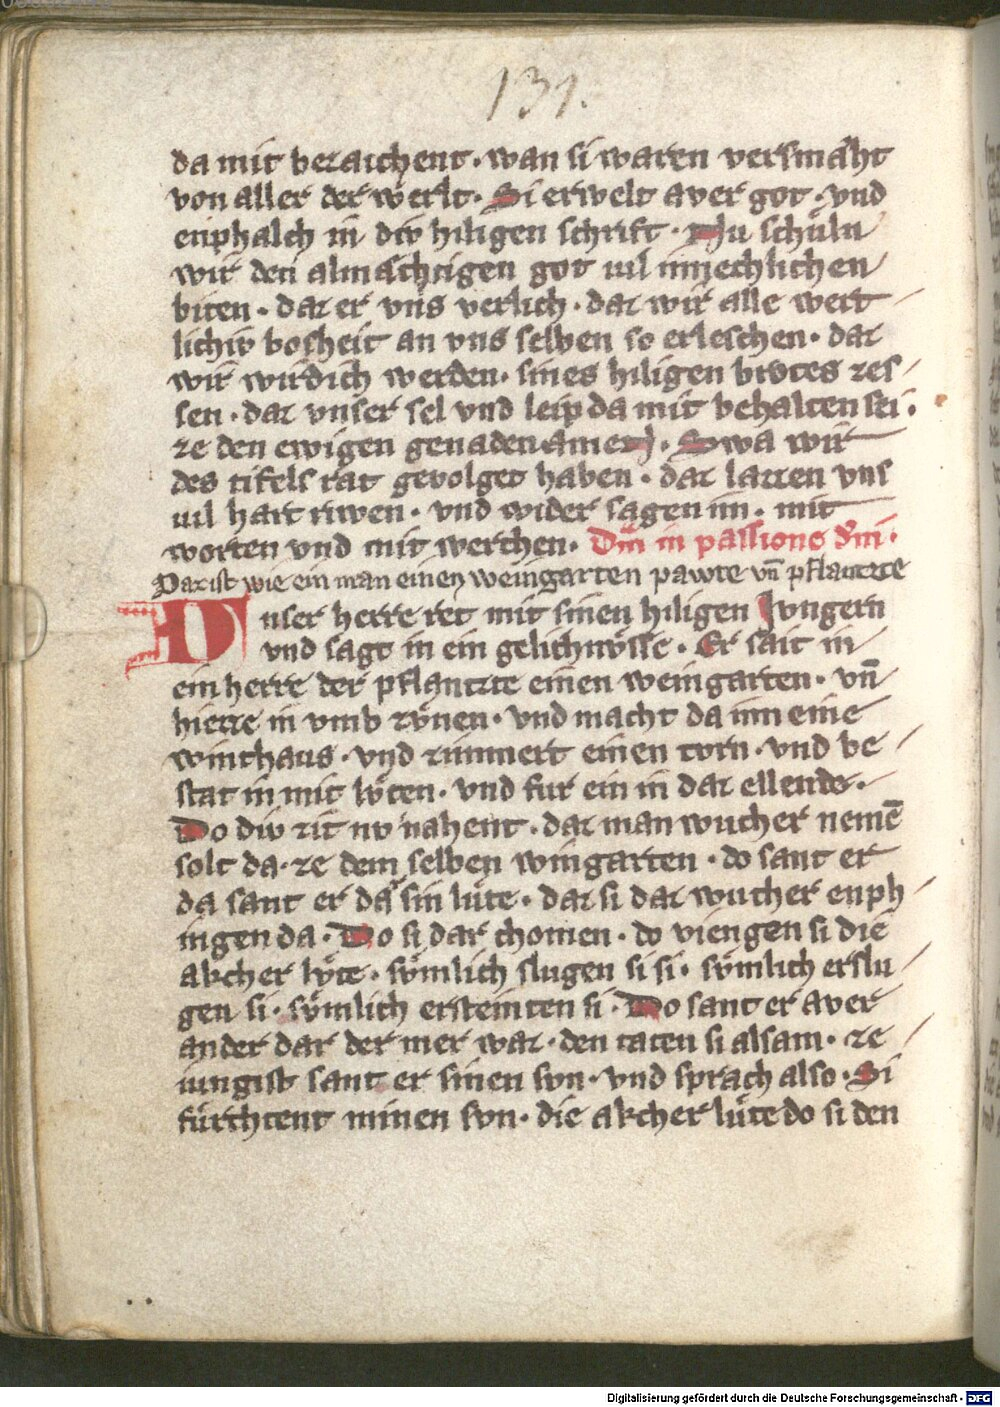 131.
da mit bezaichent · wan si waren versmäht
von aller der werlt · Si erwelt aver got · vnd
enphalch in div hiligen schrift · Nu schuͤln
wir den almächtigen got uil innechlichen
biten · daz er vns verlich · daz wir alle wert
lichiv bosheit an vns selben so erleschen · daz
wir wirdich werden · sines hiligen brotes zes
sen · daz vnser sel vnd leip da mit behalten sei ·
ze den ewigen genaden amen · Swa wir
des tifels rat gevolget haben · daz lazzen vns
uil hart riwen · vnd wider sagen im · mit
worten vnd mit werchen · Dm̄ in passione dn̄i ·
Daz ist wie ein man einen weingarten pawte vn̄ pflantzte
Unser herre ret mit sinen hiligen Jvngern
vnd sagt in ein gelichnvͤsse · Er sait in
ein herre der pflantzte einen weingarten · vn̄
hiezze in vmb zvͤnen · vnd macht da inn eine
winthaus · vnd zimmert einen torn · vnd be
stat in mit lvͤten · vnd fur ein in daz ellende ·
Do div zit nv nahent · daz man wucher nemē
solt da · ze dem selben wingarten · do sant er
da sant er da sin luͤte · daz si daz wucher enph
ingen da · Do si dar chomen · do viengen si die
akcher lvͤte · svͤmlich slugen si si · svͤmlich erslu
gen si · svͤmlich ersteinten si · Do sant er aver
ander dar der mer waz · den taten si alsam · ze
iungist sant er sinen svn · vnd sprach also · Si
fuͤrchtent minen svn · die akcher luͤte do si den
Digitalisierung gefördert durch die Deutsche Forschungsgemeinschaft - DFG